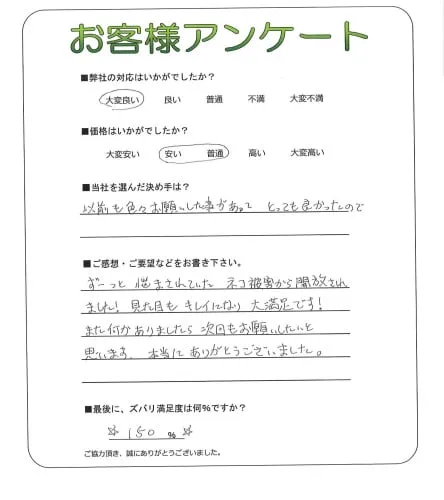 お客様アンケート
■弊社の対応はいかがでしたか?
大変良い 良い 普通 不満 大変不満
■価格はいかがでしたか?
大変安い 安い 普通 高い 大変高い
■当社を選んだ決め手は?
以前も色々お願いした事があって とっても良かったので
■ご感想・ご要望などをお書き下さい。
ずーっと 悩まされていた ネコ被害から開放され
ました! 見た目も キレイになり 大満足です!
また何かありましたら 次回もお願いしたいと
思います 本当に ありがとうございました。
■最後に、ズバリ満足度は何%ですか?
☆ 150 % ☆
ご協力頂き、誠にありがとうございました。